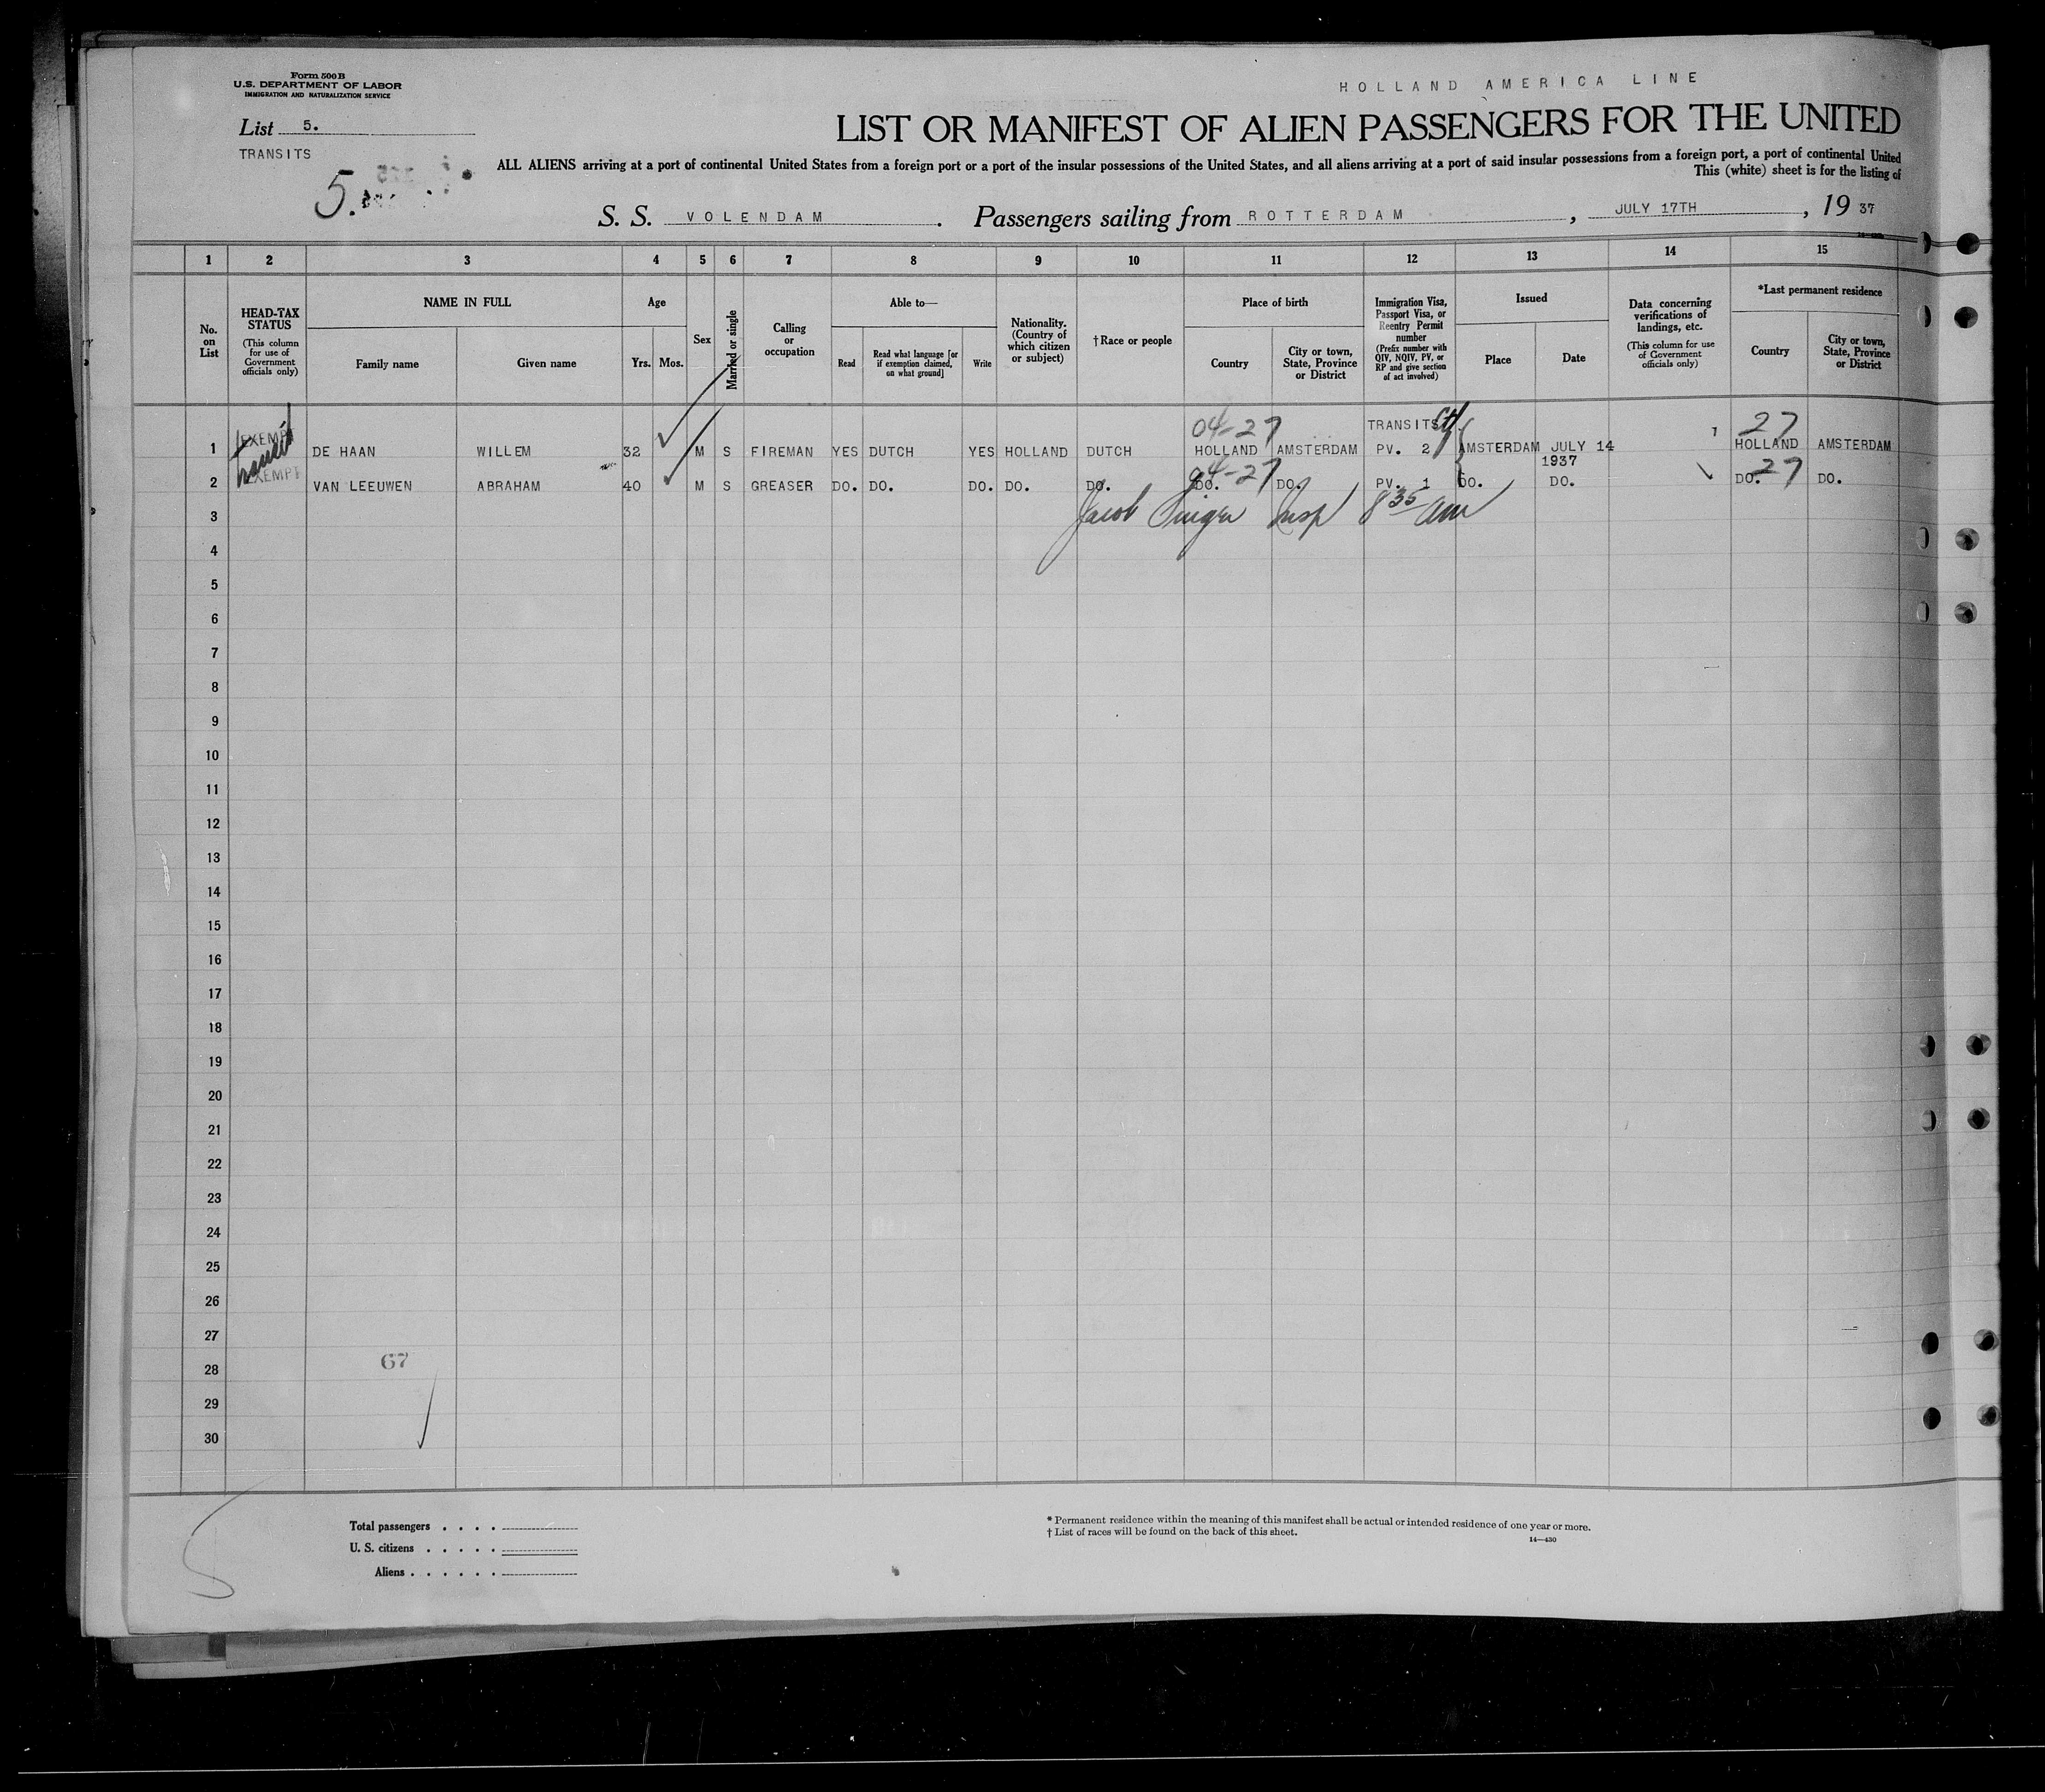 Form 500 B
U.S. DEPARTMENT OF LABOR
IMMIGRATION AND NATURALIZATION SERVICE
HOLLAND AMERICA LINE
List 5.
TRANSITS
5.
LIST OR MANIFEST OF ALIEN PASSENGERS FOR THE UNITED
ALL ALIENS arriving at a port of continental United States from a foreign port or a port of the insular possessions of the United States, and all aliens arriving at a port of said insular possessions from a foreign port, a port of continental United
This (white) sheet is for the listing of
S. S. VOLENDAM. Passengers sailing from ROTTERDAM, JULY 17TH, 19 37
1 2 3 4 5 6 7 8 9 10 11 12 13 14 15
No. on List
HEAD-TAX STATUS (This column for use of Government officials only)
NAME IN FULL
Family name
Given name
Age
Yrs. Mos.
Sex
Married or single
Calling or occupation
Able to—
Read
Read what language [or if exemption claimed, on what ground]
Write
Nationality. (Country of which citizen or subject)
† Race or people
Place of birth
Country
City or town, State, Province or District
Immigration Visa, Passport Visa, or Reentry Permit number (Prefix number with QIV, NQIV, PV, or RP and give section of act involved)
Issued
Place
Date
Data concerning verifications of landings, etc. (This column for use of Government officials only)
*Last permanent residence
Country
City or town, State, Province or District
04-27 TRANSITS 27
1 EXEMPT DE HAAN WILLEM 32 M S FIREMAN YES DUTCH YES HOLLAND DUTCH HOLLAND AMSTERDAM PV. 2 AMSTERDAM JULY 14 1937 HOLLAND AMSTERDAM
04-27 27
2 EXEMPT VAN LEEUWEN ABRAHAM 40 M S GREASER DO. DO. DO. DO. DO. DO. DO. PV. 1 DO. DO. DO. DO.
3 Jacob Singer Insp 8 35 am
4
5
6
7
8
9
10
11
12
13
14
15
16
17
18
19
20
21
22
23
24
25
26
27
67
28
29
30
Total passengers . . . .
U. S. citizens . . . . .
Aliens . . . . . .
* Permanent residence within the meaning of this manifest shall be actual or intended residence of one year or more.
† List of races will be found on the back of this sheet.
14—430